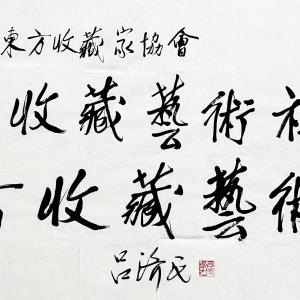 東方收藏家協會
收藏藝術社
方收藏藝術
吕濟民